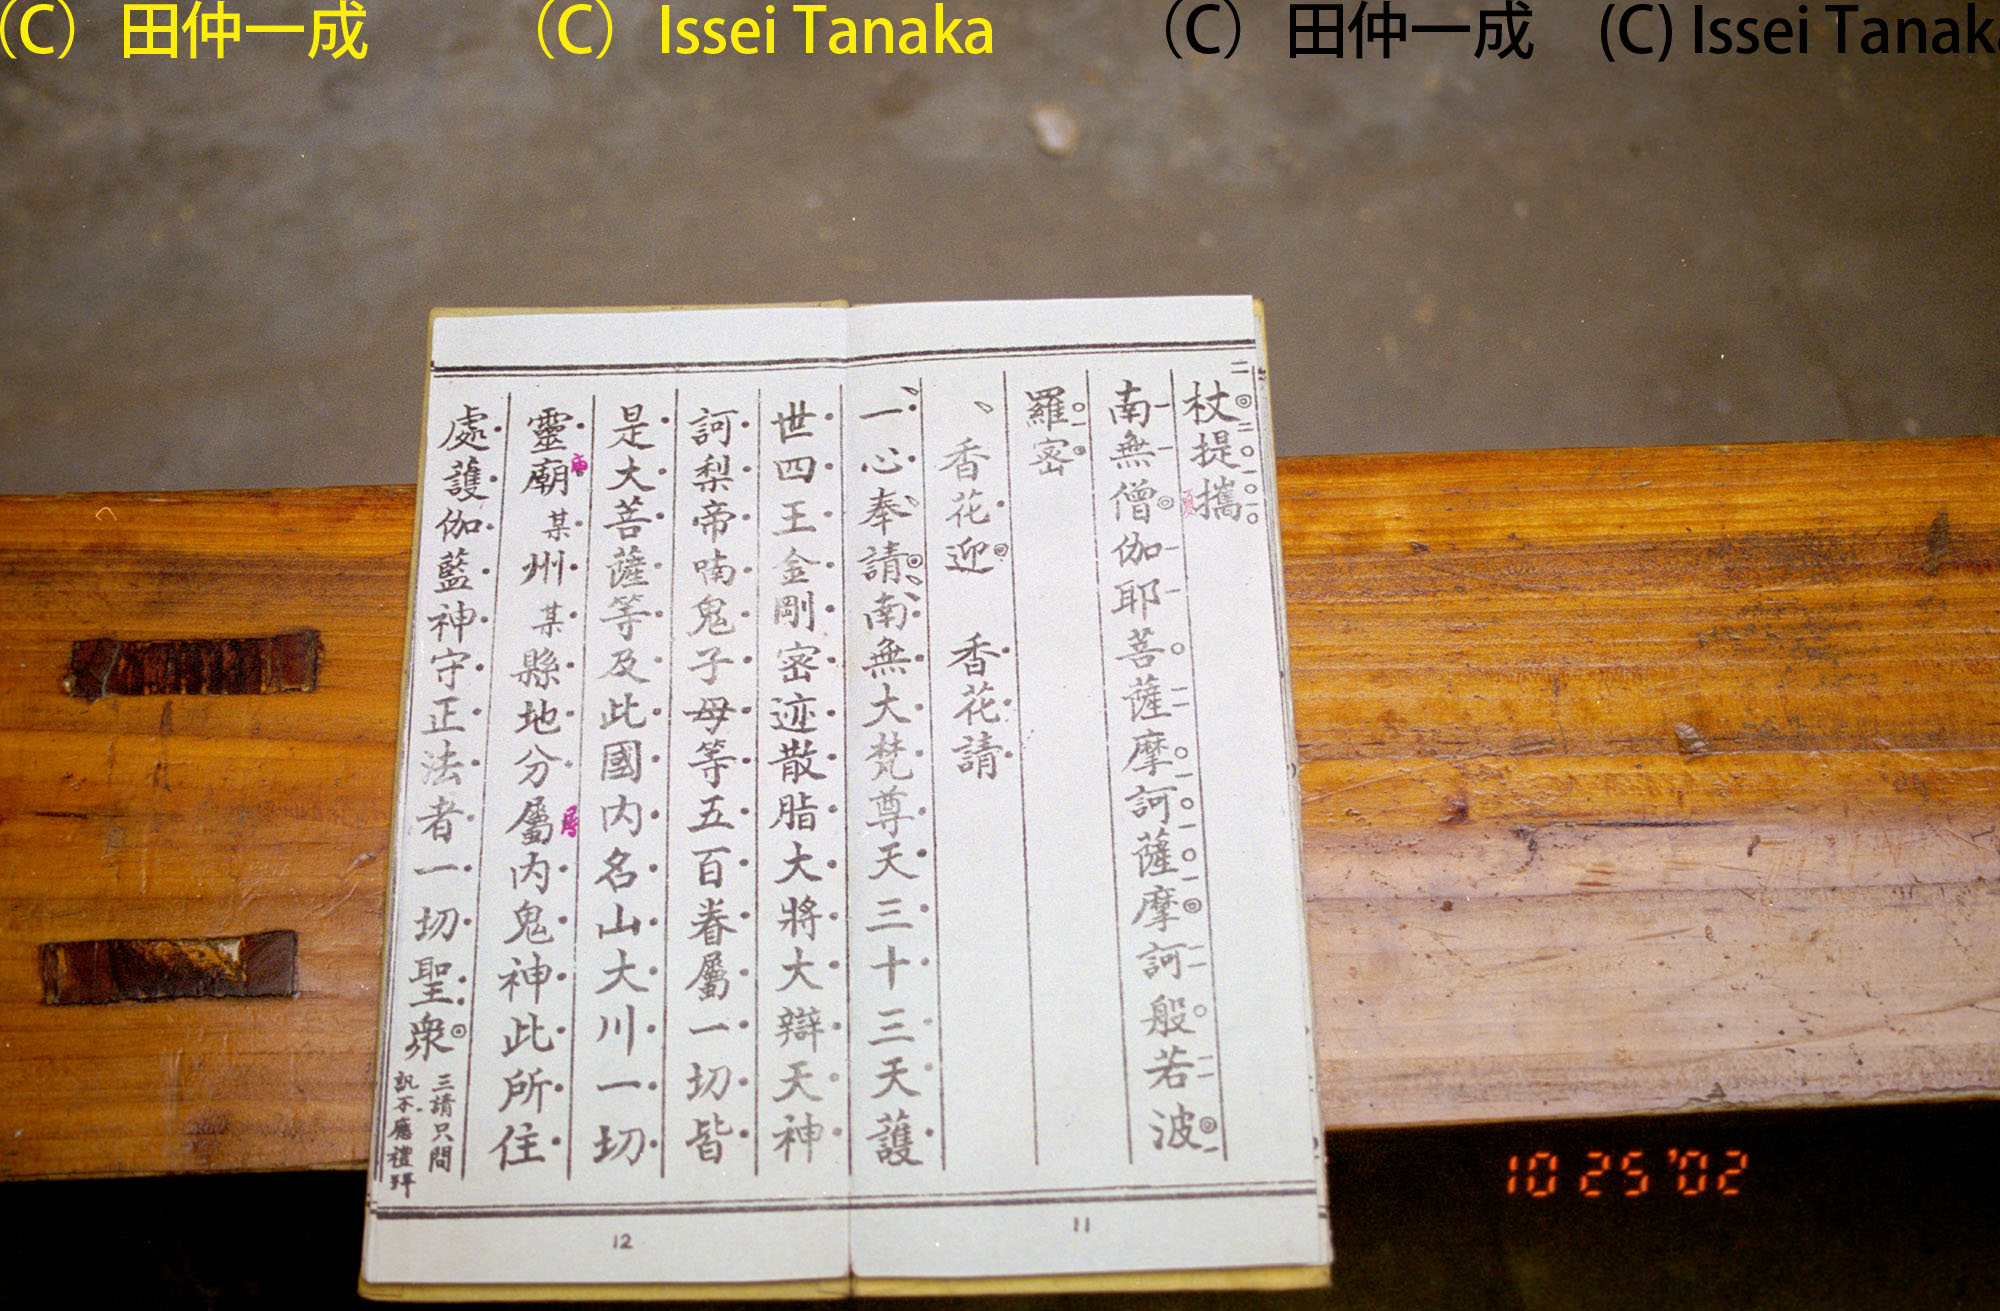 （C） 田仲一成　（C） Issei Tanaka　（C） 田仲一成　(C) Issei Tanaka
杖提攜
南無僧伽耶菩薩摩訶薩摩訶般若波
羅密
香花迎　香花請
一心奉請南無大梵尊天三十三天護
世四王金剛密迹散脂大將大辯天神
訶梨帝喃鬼子母等五百眷屬一切皆
是大菩薩等及此國内名山大川一切
靈廟某州某縣地分屬内鬼神此所住
處護伽藍神守正法者一切聖衆
三請只問
訊不應禮拜
11
12
10 25 '02